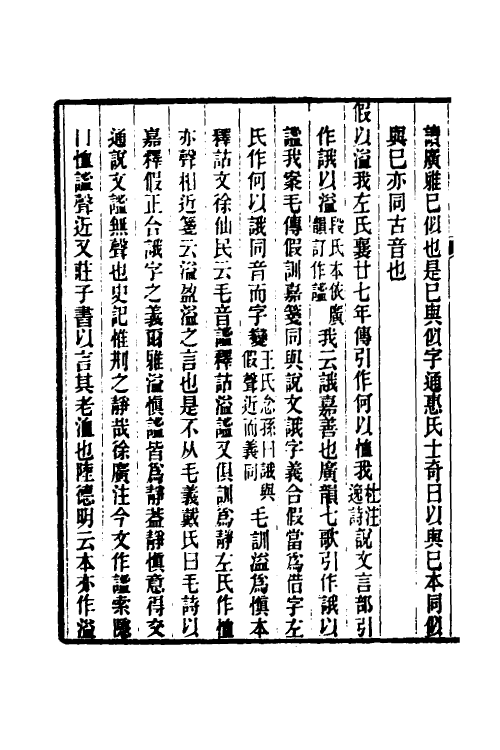 讀廣雅巳似也是巳與似字通惠氏士奇曰以與巳本同似
與巳亦同古音也
假以溢我左氏襄廿七年傳引作何以恤我杜注逸詩說文言部引
作誐以溢段氏本依廣韻訂作謐我云誐嘉善也廣韻七歌引作誐以
謐我案毛傳假訓嘉箋同與說文誐字義合假當爲借字左
氏作何以誐同音而字變王氏念孫曰誐與假聲近而義同毛訓溢爲愼本
釋詁文徐仙民云毛音謐釋詁溢謐又俱訓爲靜左氏作恤
亦聲相近箋云溢盈溢之言也是不从毛義戴氏曰毛詩以
嘉釋假正合誐字之義爾雅溢愼謐皆爲靜葢靜愼意得交
通說文謐無聲也史記惟刑之靜哉徐廣注今文作謐索隱
曰恤謐聲近又莊子書以言其老洫也陸德明云本亦作溢